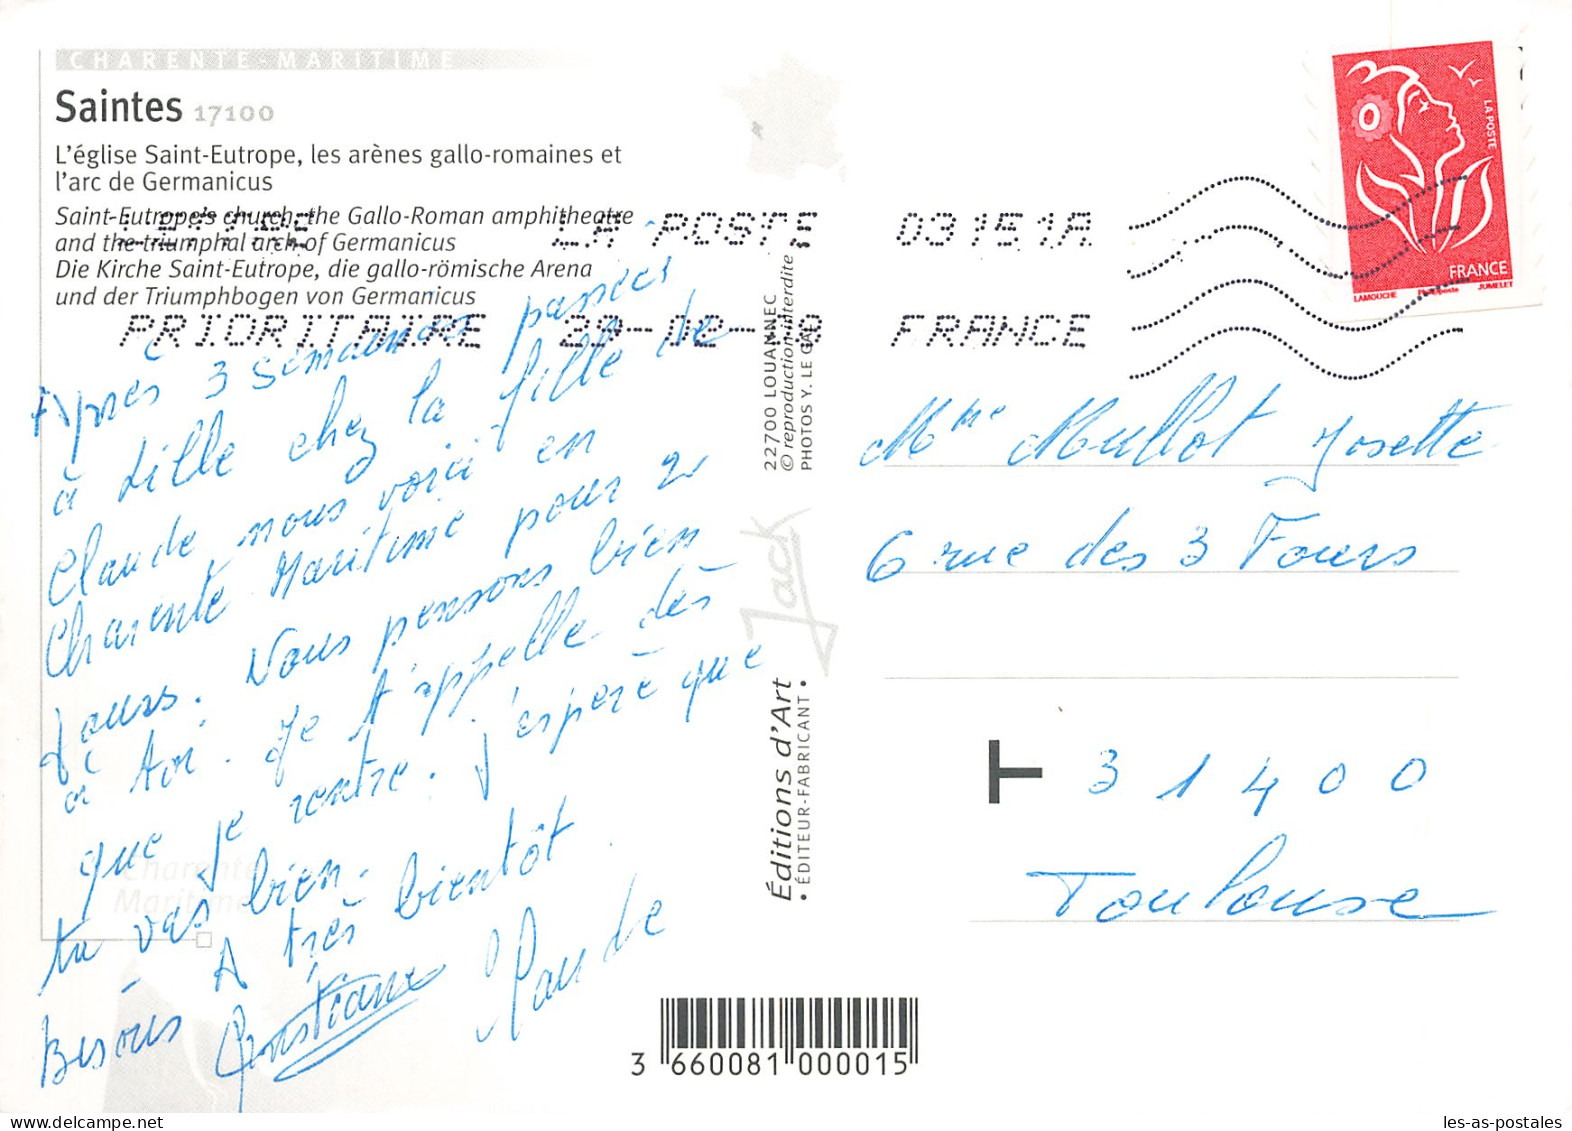 CHARENTE-MARITIME
Saintes 17100
L'église Saint-Eutrope, les arènes gallo-romaines et
l'arc de Germanicus
Saint-Eutrope's church, the Gallo-Roman amphitheatre
and the triumphal arch of Germanicus
Die Kirche Saint-Eutrope, die gallo-römische Arena
und der Triumphbogen von Germanicus
LETTRE LA POSTE 03151A
PRIORITAIRE FRANCE
LA POSTE
FRANCE
LAMOUCHE Phil@poste JUMELET
Après 3 semaines passées
à Lille chez la fille de
Claude nous voici en
Charente Maritime pour 2
jours. Nous pensons bien
à toi. Je t'appelle dès
que je rentre. J'espère que
tu vas bien.
A très bientôt.
Bisous Christiane Claude
Charente
Maritime
22700 LOUANNEC
© reproduction interdite
PHOTOS Y. LE GAL
Jack
Éditions d'Art
• ÉDITEUR-FABRICANT •
Mme Mullot Josette
6 rue des 3 Fours
T 31400
Toulouse
3 660081 000015
les-as-postales